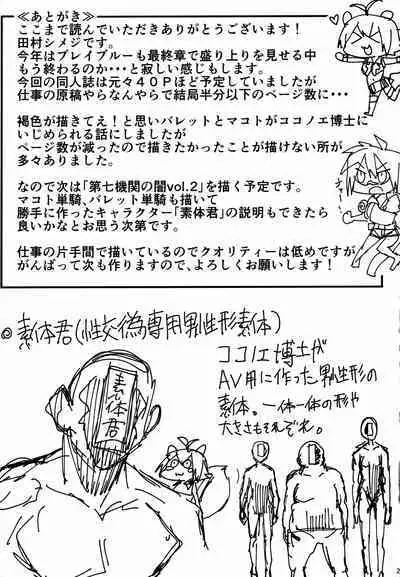 ≪あとがき≫
ここまで読んでいただきありがとうございます！
田村シメジです。
今年はブレイブルーも最終章で盛り上りを見せる中
もう終わるのか・・・と寂しい感じもします。
今回の同人誌は元々４０Ｐほど予定していましたが
仕事の原稿やらなんやらで結局半分以下のページ数に・・・
褐色が描きてえ！と思いバレットとマコトがココノエ博士に
いじめられる話にしましたが
ページ数が減ったので描きたかったことが描けない所が
多々ありました。
なので次は「第七機関の闇vol.２」を描く予定です。
マコト単騎、バレット単騎も描いて
勝手に作ったキャラクター「素体君」の説明もできたら
良いかなとお思う次第です。
仕事の片手間で描いているのでクオリティーは低めですが
がんばって次も作りますので、よろしくお願いします！
◎素体君(性交偽専用男性形素体)
素体君
ココノエ博士が
AV用に作った男性形の
素体。一体一体の形や
大きさもそれぞれ。
2